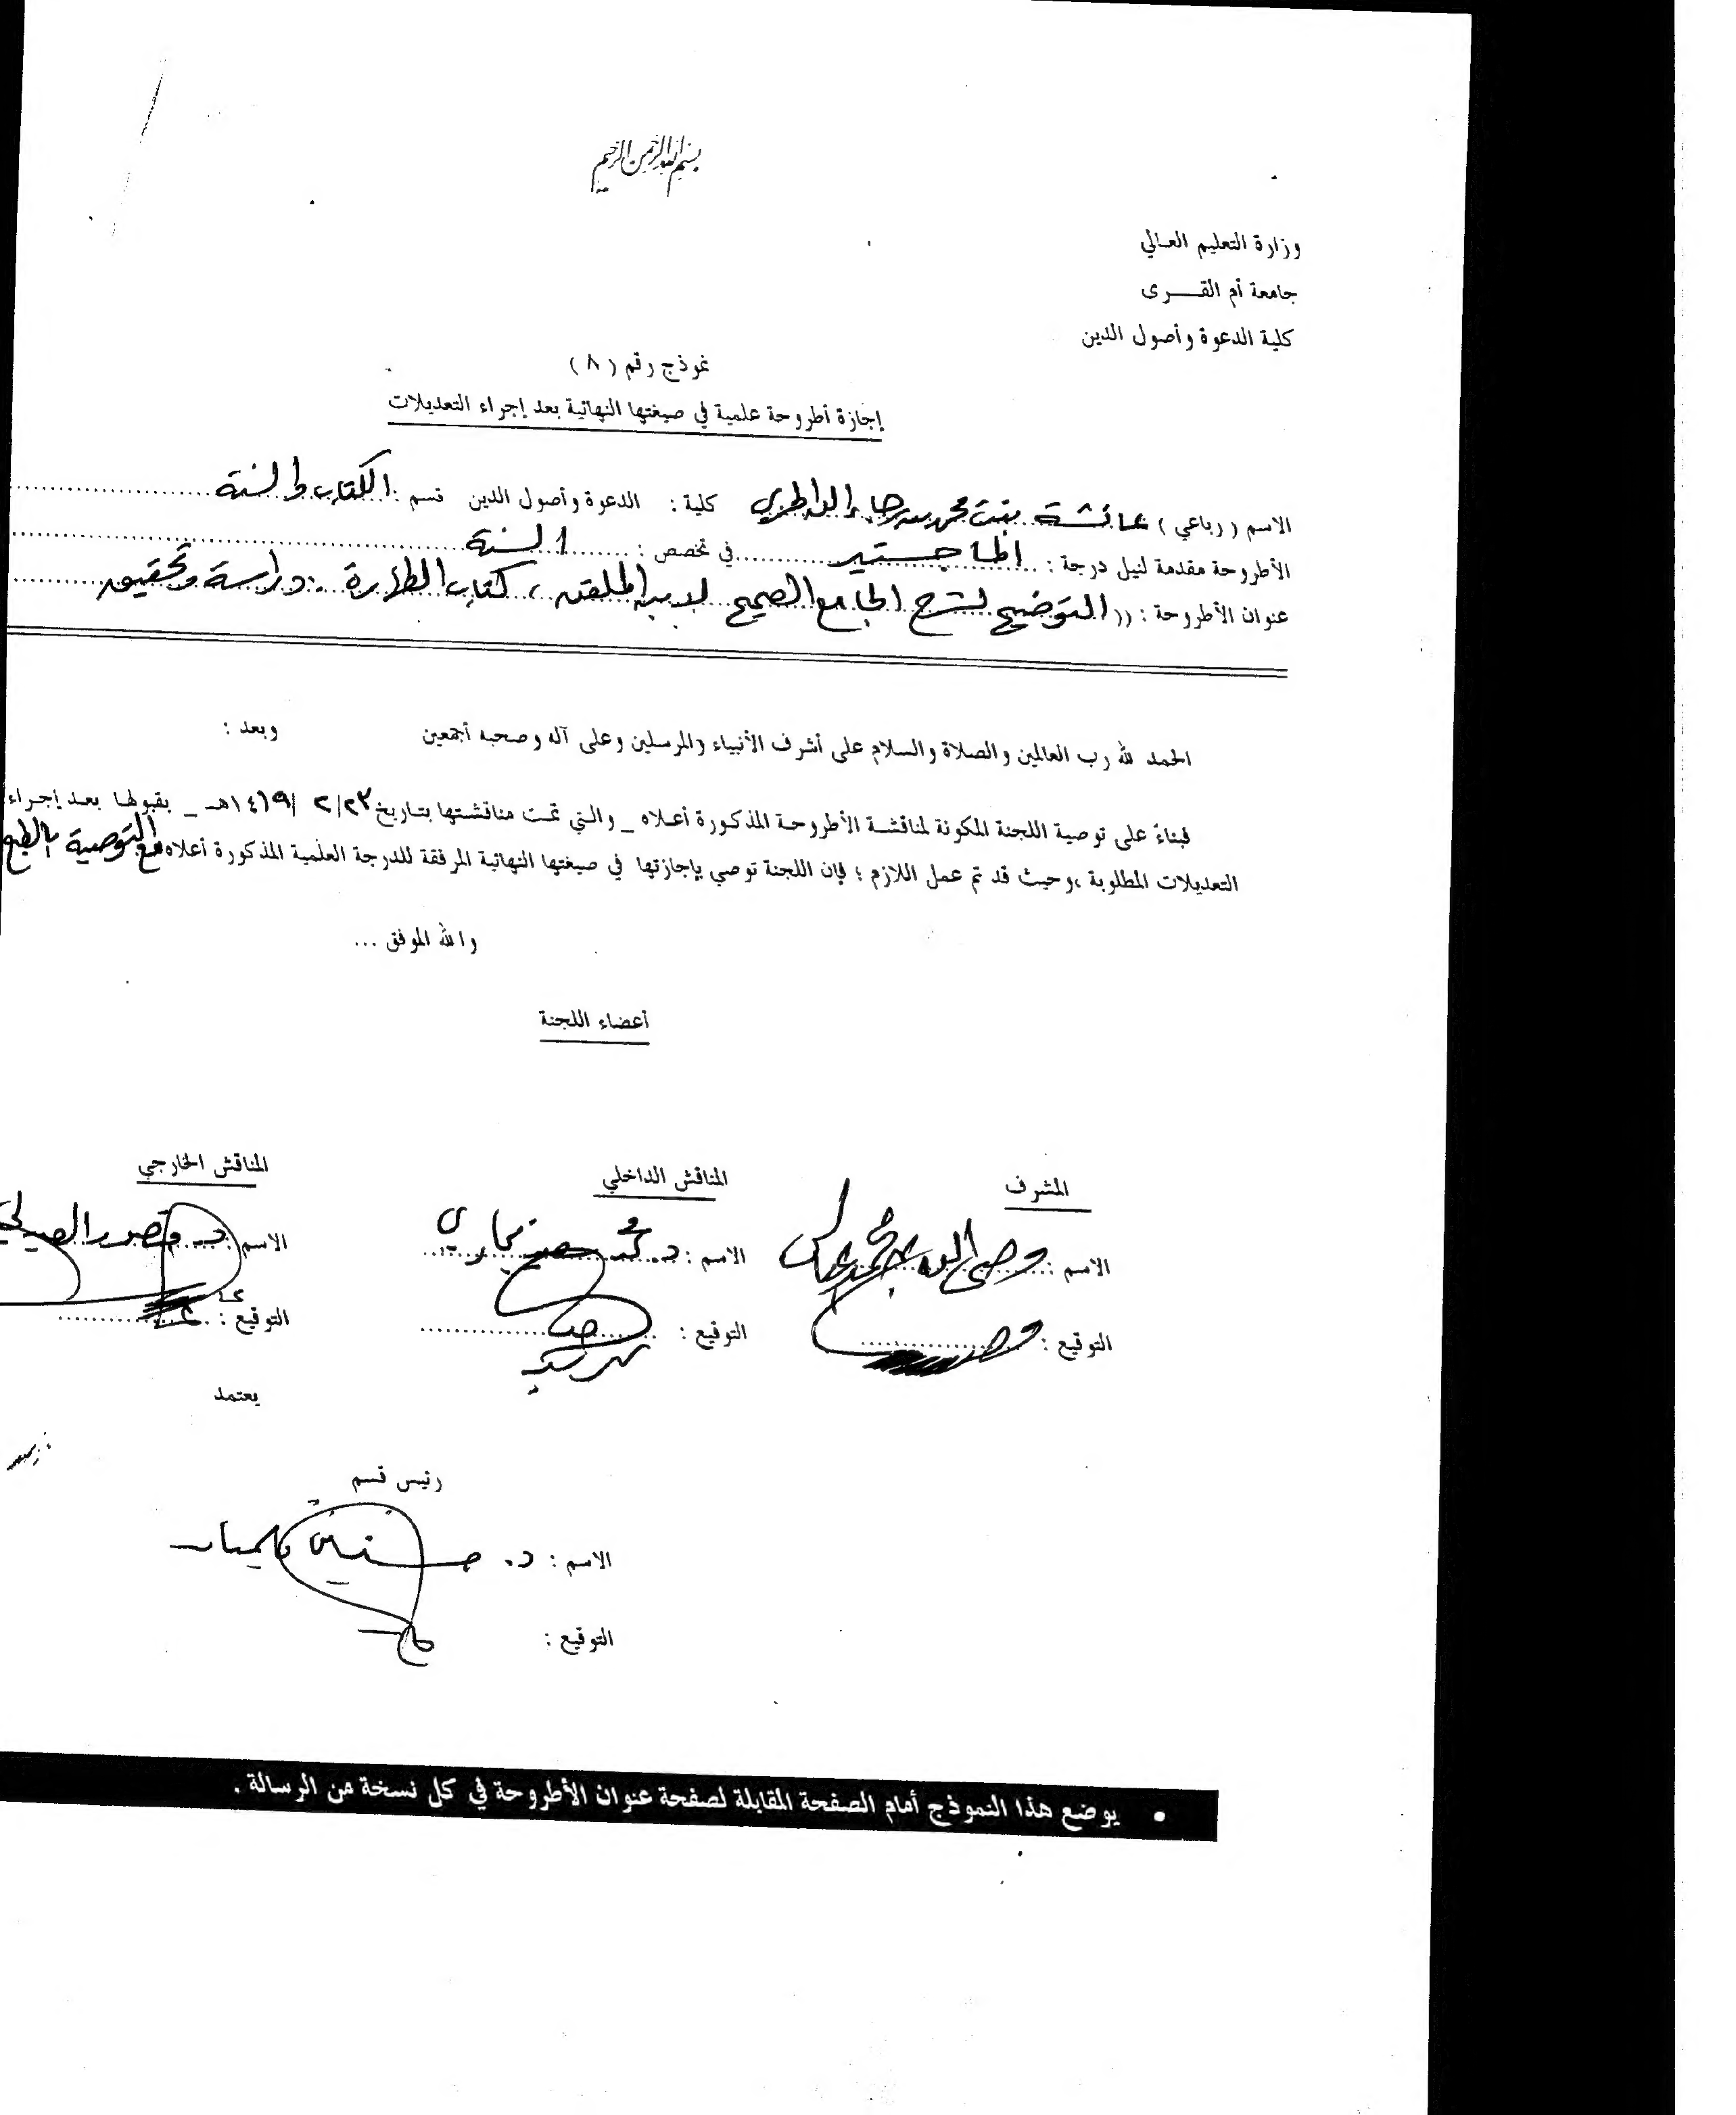 بسم الله الرحمن الرحيم
وزارة التعليم العالي
جامعة أم القـــرى
كلية الدعوة وأصول الدين
نموذج رقم ( ٨ )
إجازة أطروحة علمية في صيغتها النهائية بعد إجراء التعديلات
الاسم ( رباعي ) عائشة بنت محمد بن رجاء الله الحربي كلية : الدعوة وأصول الدين قسم : الكتاب والسنة
الأطروحة مقدمة لنيل درجة : الماجستير في تخصص : السنة
عنوان الأطروحة : (( التوضيح لشرح الجامع الصحيح لابن الملقن ، كتاب الطهارة . دراسة وتحقيق
الحمد لله رب العالمين والصلاة والسلام على أشرف الأنبياء والمرسلين وعلى آله وصحبه أجمعين وبعد :
فبناءً على توصية اللجنة المكونة لمناقشة الأطروحة المذكورة أعلاه _ والتي تمت مناقشتها بتاريخ ٢٣/ ٢ /١٤١٩هـ _ بقبولها بعد إجراء
التعديلات المطلوبة ،وحيث قد تم عمل اللازم ؛ فإن اللجنة توصي بإجازتها في صيغتها النهائية المرفقة للدرجة العلمية المذكورة أعلاه مع التوصية بالطبع
والله الموفق ...
أعضاء اللجنة
المشرف المناقش الداخلي المناقش الخارجي
الاسم : وصي الله بن محمد عباس الاسم : د. محمد بخاري الاسم : د.
التوقيع : التوقيع : التوقيع :
يعتمد
رئيس قسم
الاسم : د.
التوقيع :
• يوضع هذا النموذج أمام الصفحة المقابلة لصفحة عنوان الأطروحة في كل نسخة من الرسالة .